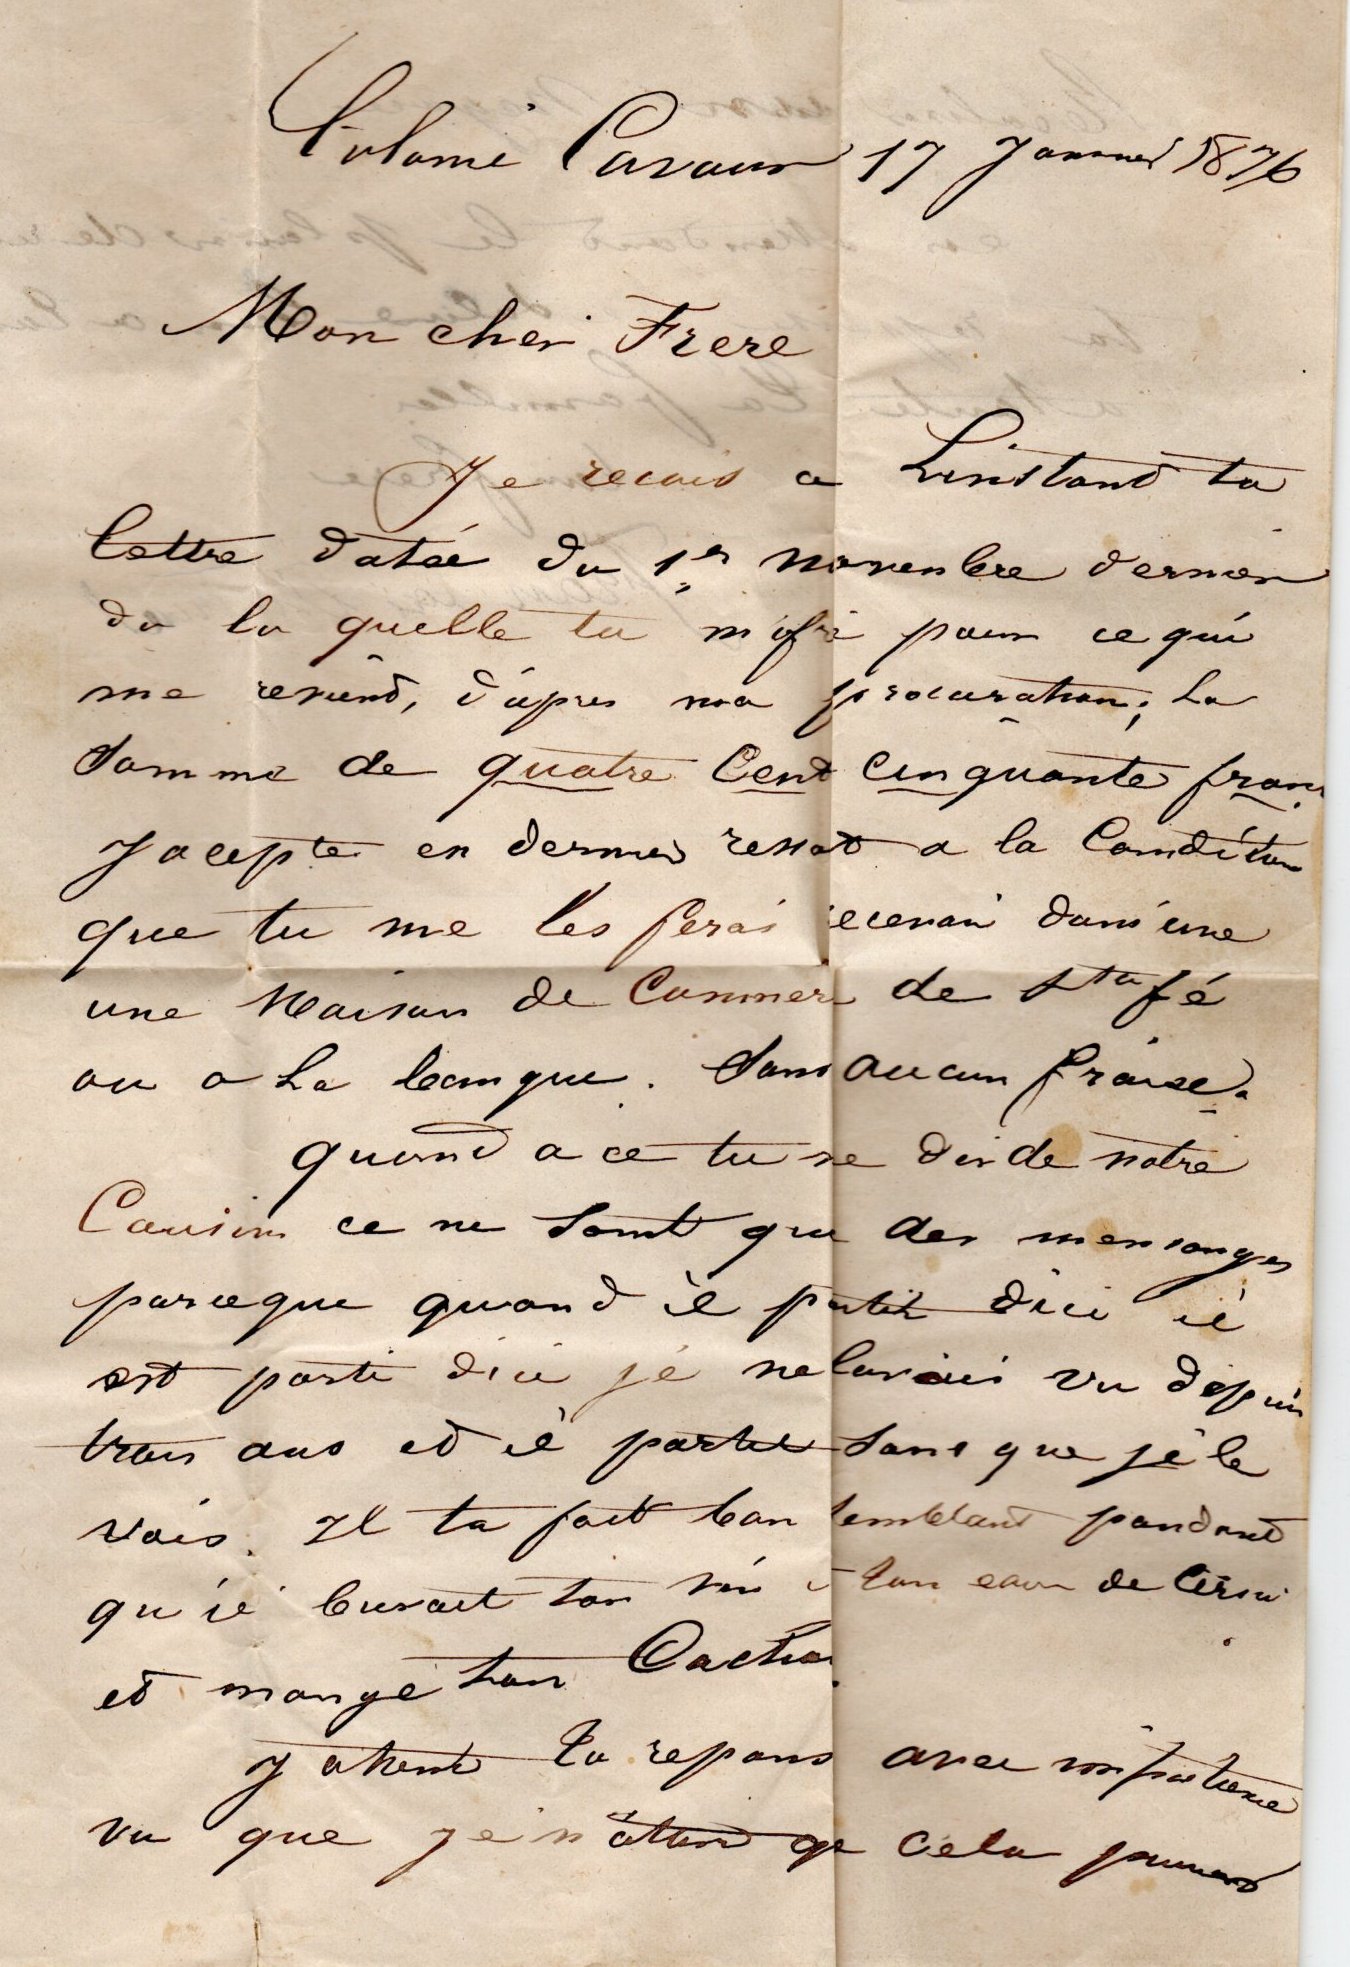 Colonie Cavour 17 Janvier 1876
Mon cher Frere
Je recois a Linstant ta
lettre datée du 1er novembre dernier
da la quelle tu m'ofre pour ce qui
me revient, d'apres ma procuration; La
Somme de quatre Cent cinquante franc
J acepte en dernier ressort a la Condition
que tu me les ferai recevoir dans une
une Maison de Commerce de Sta fé
ou a La banque. Sans aucun fraise.
quand a ce tu me dis de notre
Cousin ce ne Sont que des mensonges
parceque quand il partit dici il
est parti dici je ne lavais vu depuis
trois ans et il partit Sans que je le
vois. Il ta fait bon Semblant pandant
qu'il buvait ton vin ton eau de
et mangé ton
J atend ta repons avec impatience
vu que je n atend que cela